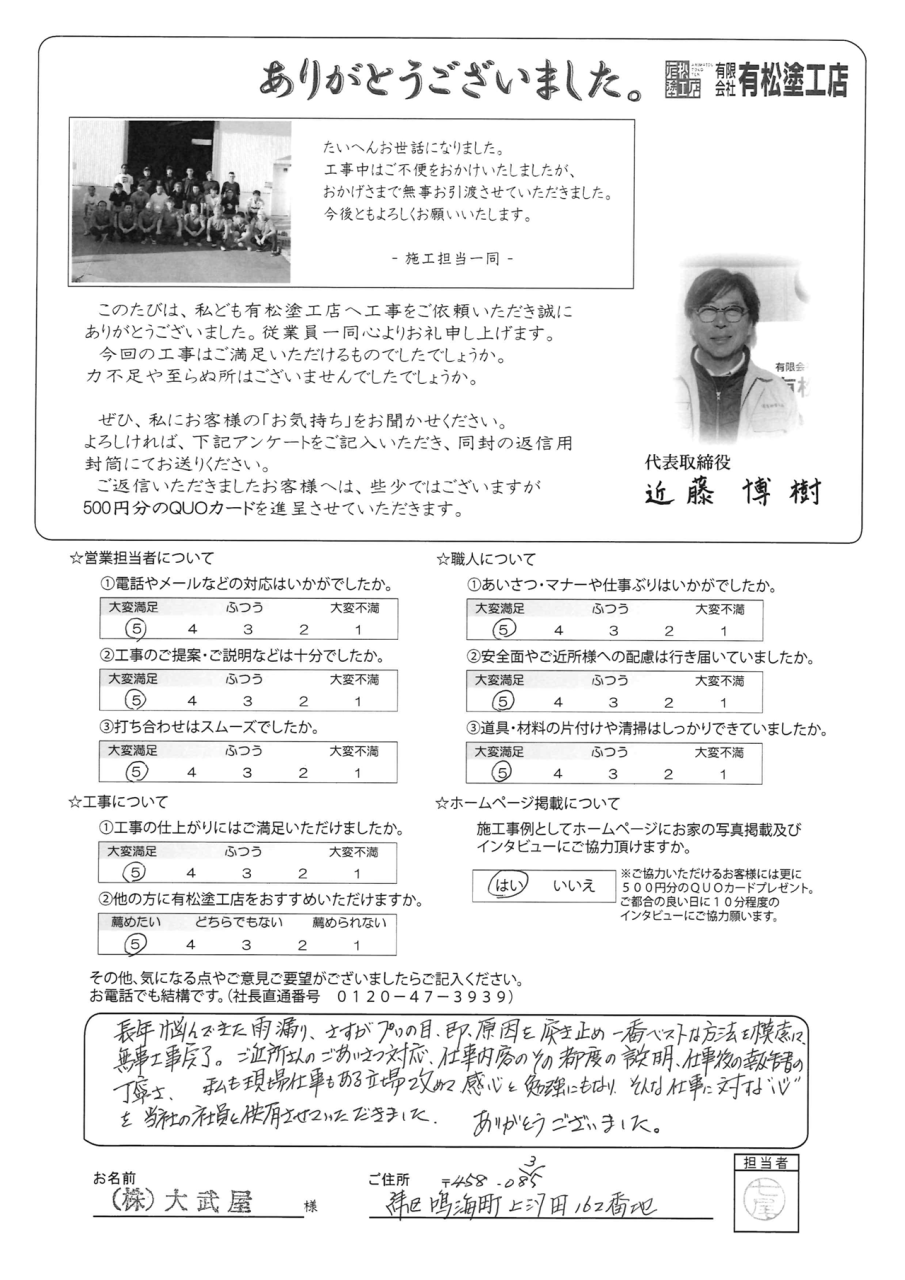 ありがとうございました。
有限会社 有松塗工店
たいへんお世話になりました。
工事中はご不便をおかけいたしましたが、
おかげさまで無事お引渡させていただきました。
今後ともよろしくお願いいたします。
- 施工担当一同 -
このたびは、私ども有松塗工店へ工事をご依頼いただき誠に
ありがとうございました。従業員一同心よりお礼申し上げます。
今回の工事はご満足いただけるものでしたでしょうか。
力不足や至らぬ所はございませんでしたでしょうか。
ぜひ、私にお客様の「お気持ち」をお聞かせください。
よろしければ、下記アンケートをご記入いただき、同封の返信用
封筒にてお送りください。
ご返信いただきましたお客様へは、些少ではございますが
500円分のQUOカードを進呈させていただきます。
有限会
代表取締役
近藤 博樹
☆営業担当者について
①電話やメールなどの対応はいかがでしたか。
大変満足 ふつう 大変不満
5 4 3 2 1
②工事のご提案・ご説明などは十分でしたか。
大変満足 ふつう 大変不満
5 4 3 2 1
③打ち合わせはスムーズでしたか。
大変満足 ふつう 大変不満
5 4 3 2 1
☆職人について
①あいさつ・マナーや仕事ぶりはいかがでしたか。
大変満足 ふつう 大変不満
5 4 3 2 1
②安全面やご近所様への配慮は行き届いていましたか。
大変満足 ふつう 大変不満
5 4 3 2 1
③道具・材料の片付けや清掃はしっかりできていましたか。
大変満足 ふつう 大変不満
5 4 3 2 1
☆工事について
①工事の仕上がりにはご満足いただけましたか。
大変満足 ふつう 大変不満
5 4 3 2 1
②他の方に有松塗工店をおすすめいただけますか。
薦めたい どちらでもない 薦められない
5 4 3 2 1
☆ホームページ掲載について
施工事例としてホームページにお家の写真掲載及び
インタビューにご協力頂けますか。
はい いいえ
※ご協力いただけるお客様には更に
500円分のQUOカードプレゼント。
ご都合の良い日に10分程度の
インタビューにご協力願います。
その他、気になる点やご意見ご要望がございましたらご記入ください。
お電話でも結構です。(社長直通番号 0120-47-3939)
長年悩んできた雨漏り、さすがプロの目、即、原因を突き止め一番ベストな方法を模索し、
無事工事完了。ご近所さんのごあいさつ対応、仕事内容のその都度の説明、仕事後の報告書の
丁寧さ、私も現場仕事もある立場で改めて感心と勉強にもなり、そんな仕事に対する“心”
を当社の社員と共有させていただきました。ありがとうございました。
お名前 (株)大武屋 様
ご住所 〒458-085
3
鳴海町上汐田162番地
担当者
七尾